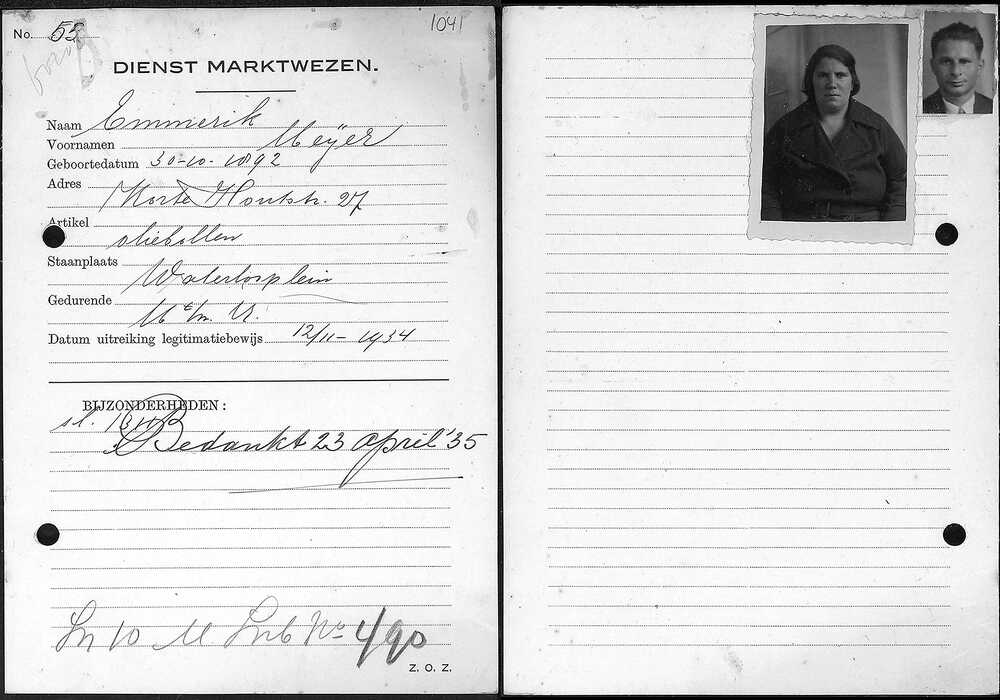 No. 55
1041
DIENST MARKTWEZEN.
Naam Emmerik
Voornamen Meijer
Geboortedatum 30-10-1892
Adres Korte Houtstr. 27
Artikel oliebollen
Staanplaats Waterlooplein
Gedurende M t/m
Datum uitreiking legitimatiebewijs 12/11-1934
BIJZONDERHEDEN:
Bedankt 23 april '35
10 M No 490
Z. O. Z.